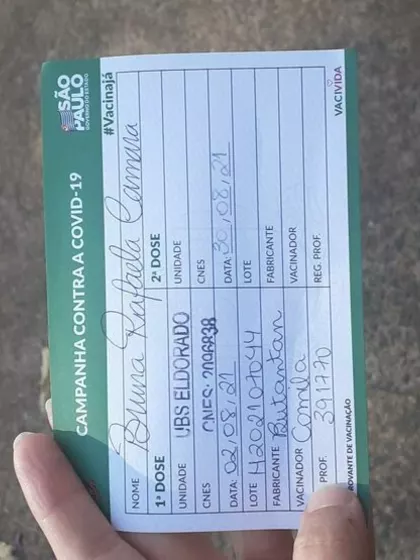 SÃO PAULO
GOVERNO DO ESTADO
CAMPANHA CONTRA A COVID-19
#Vacinajá
NOME Bruna Rafaela Camara
1ª DOSE
UNIDADE UBS ELDORADO
CNES CNES: 2096838
DATA: 02/08/21
LOTE H202107044
FABRICANTE Butantan
VACINADOR Camila
PROF. 391770
2ª DOSE
UNIDADE
CNES
DATA: 30/08/21
LOTE
FABRICANTE
VACINADOR
REG. PROF.
ROVANTE DE VACINAÇÃO
VACIVIDA